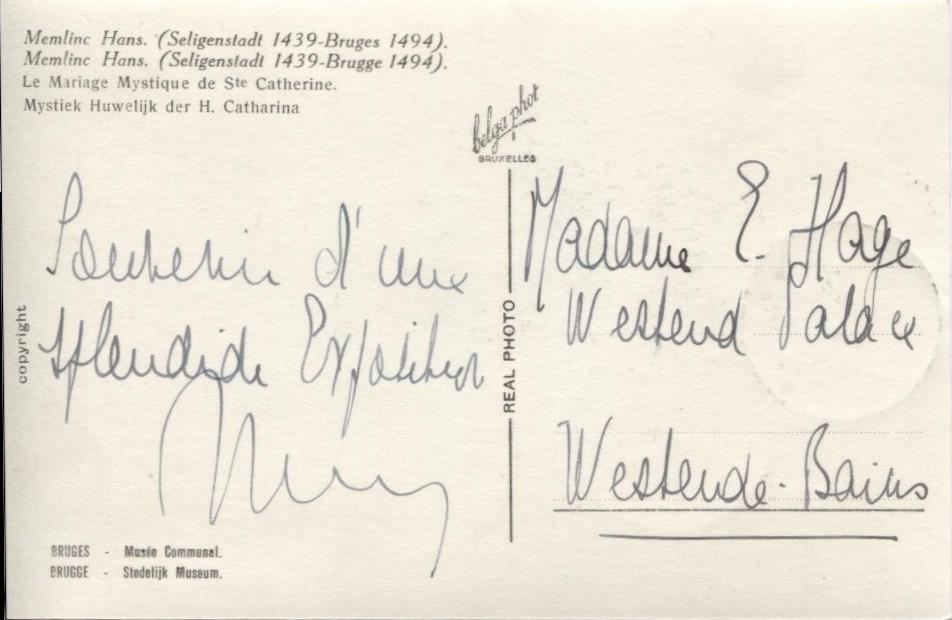 Memlinc Hans. (Seligenstadt 1439-Bruges 1494).
Memlinc Hans. (Seligenstadt 1439-Brugge 1494).
Le Mariage Mystique de Ste Catherine.
Mystiek Huwelijk der H. Catharina
belga phot
BRUXELLES
copyright
Souvenir d'une
splendide Exposition
BRUGES - Musée Communal.
BRUGGE - Stedelijk Museum.
REAL PHOTO
Madame E. Hage
Westend Palace
Westende-Bains